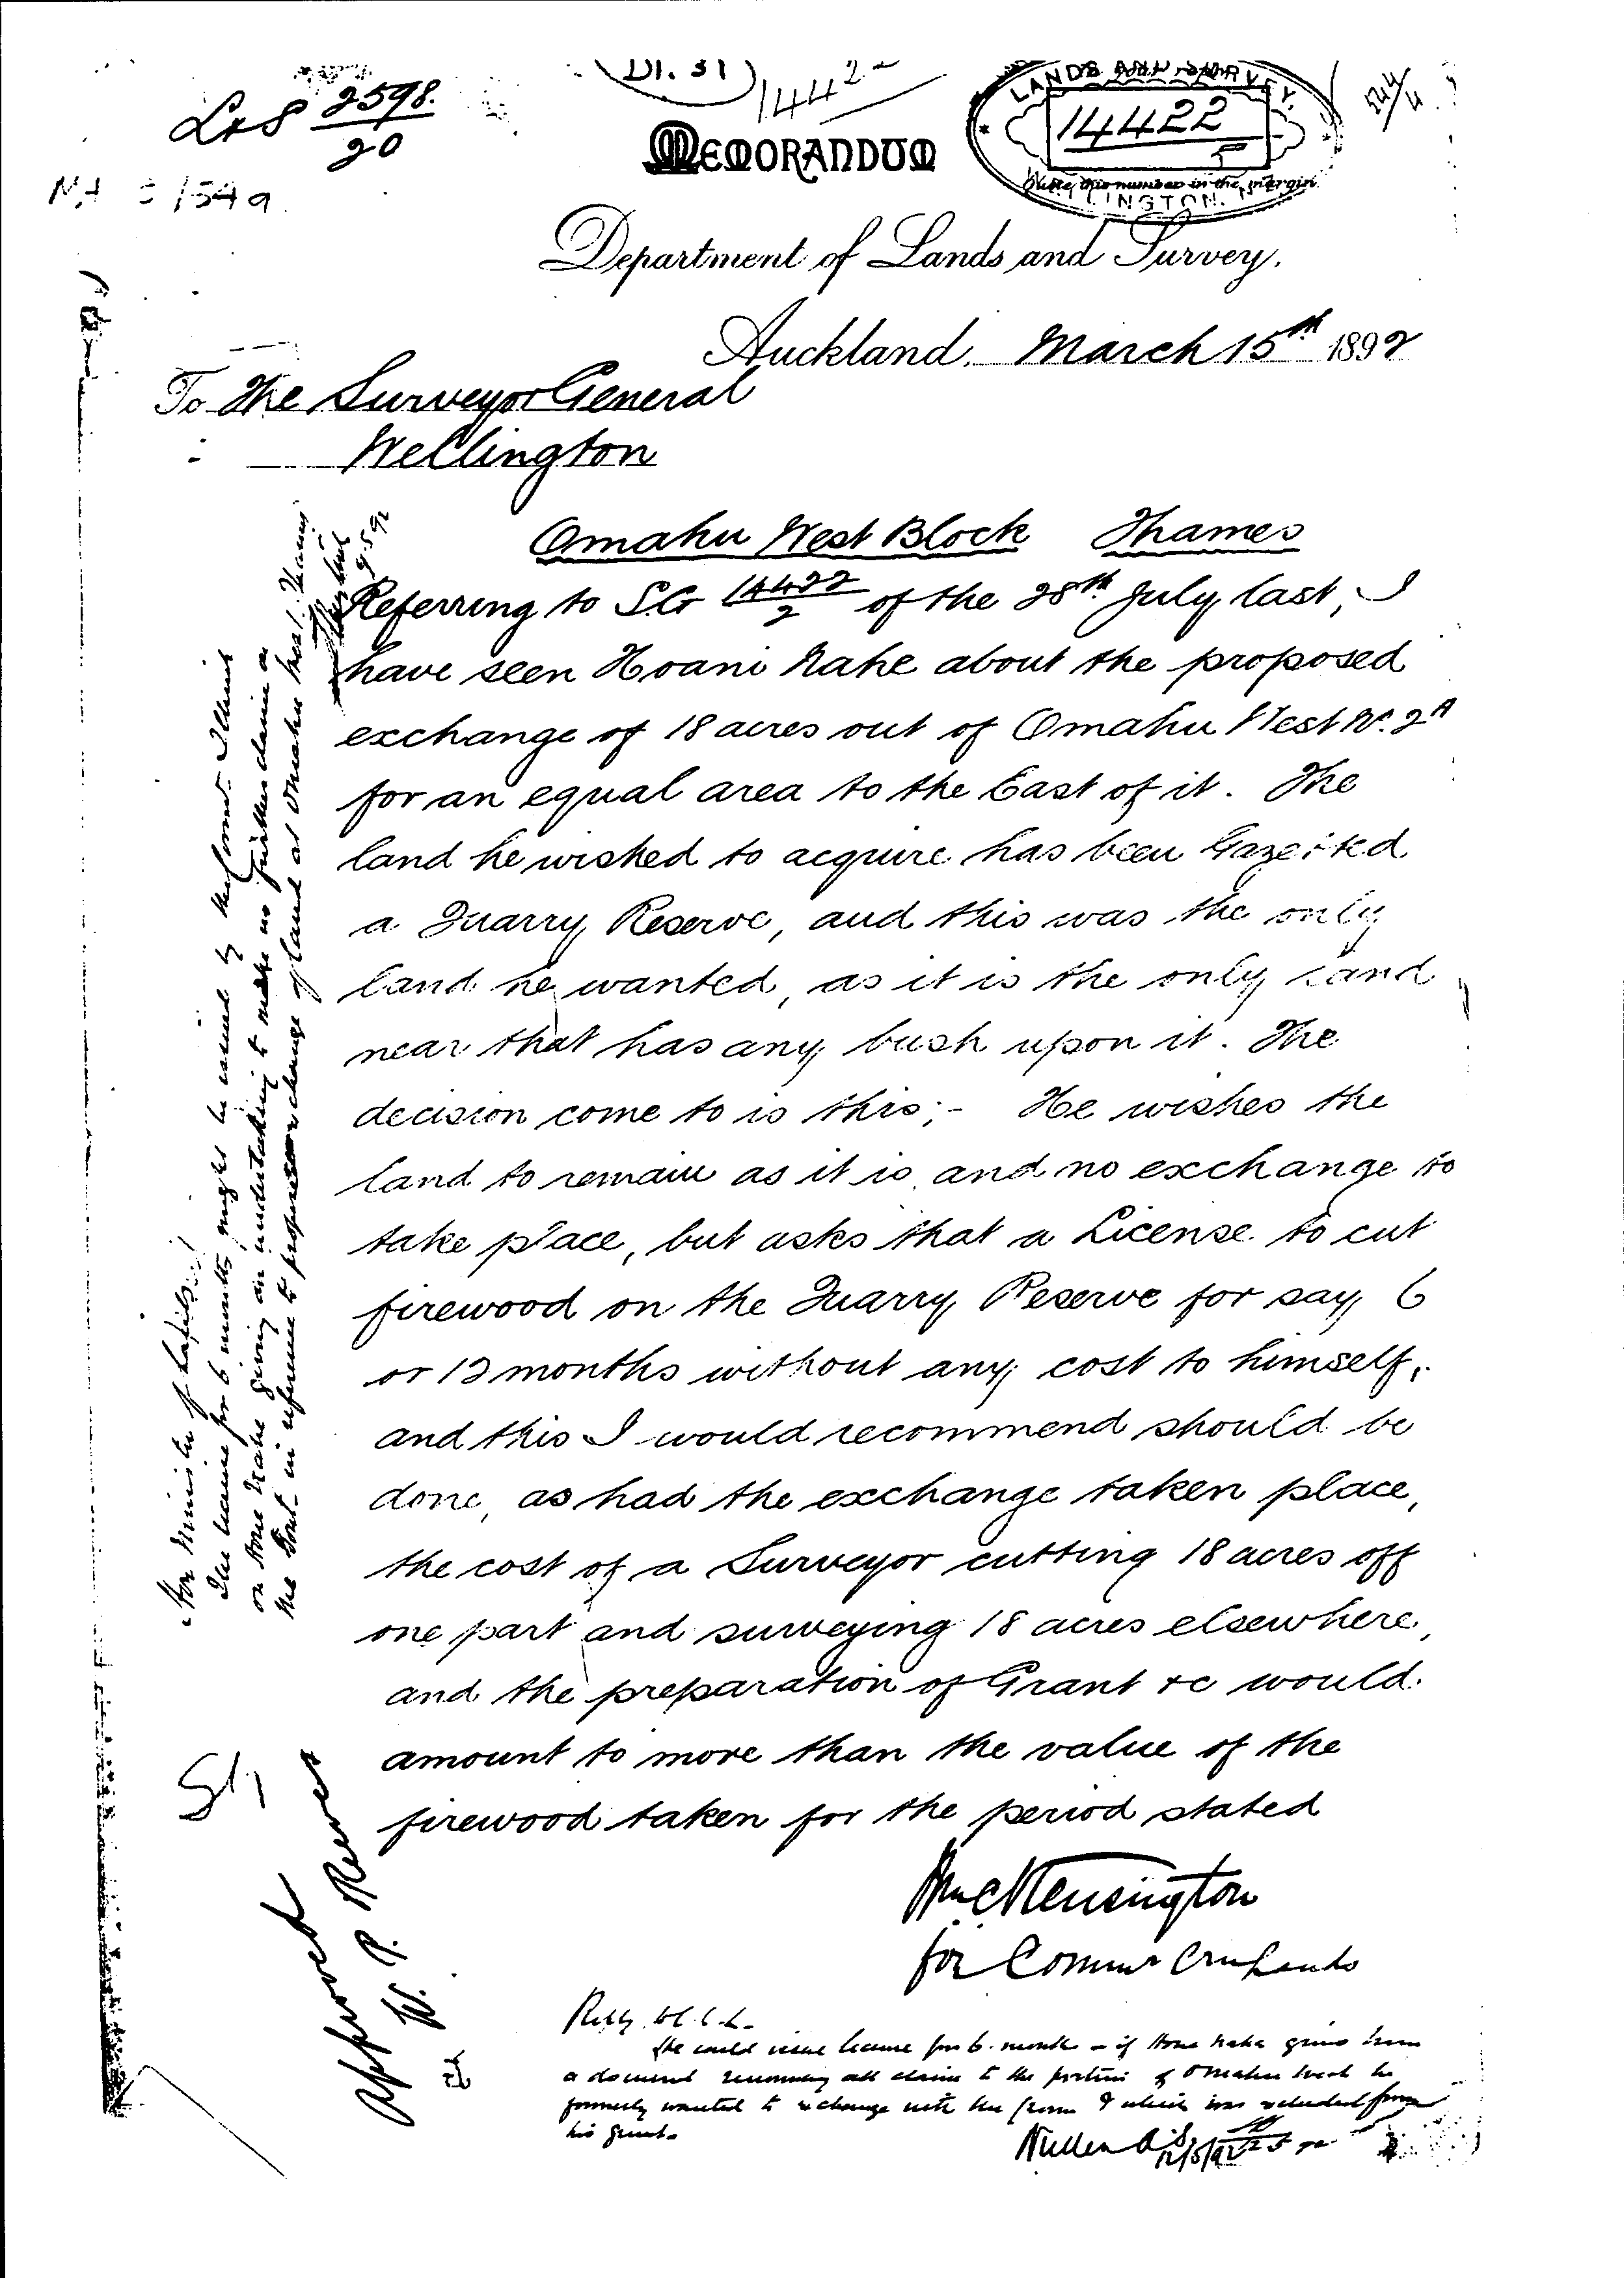 L&S 2598.
20
D1. 31
1442 2
LANDS AND SURVEY
14422
Quote this number in the margin
WELLINGTON. N
24/4
MEMORANDUM
Department of Lands and Survey.
Auckland, March 15th 1892
To The Surveyor General
Wellington
Omahu West Block Thames
Referring to S.G 14422/2 of the 28th July last, I
have seen Hoani Nahe about the proposed
exchange of 18 acres out of Omahu West No. 2A
for an equal area to the East of it. The
land he wished to acquire has been Gazetted
a Quarry Reserve, and this was the only
land he wanted, as it is the only land
near that has any bush upon it. The
decision come to is this;- He wishes the
land to remain as it is and no exchange to
take place, but asks that a License to cut
firewood on the Quarry Reserve for say 6
or 12 months without any cost to himself,
and this I would recommend should be
done, as had the exchange taken place,
the cost of a Surveyor cutting 18 acres off
one part and surveying 18 acres elsewhere,
and the preparation of Grant &c would
amount to more than the value of the
firewood taken for the period stated
Wm C Kensington
for Commr Crn Lands
Hon Minister of Lands
The license for 6 months might be issued
on Hone Nahe giving an undertaking to make no further claim on
the Govt in reference to proposed exchange of land at Omahu
Approved
W. P. Reeves
He could issue license for 6 months - if Hone Nahe gives him
a document renouncing all claim to the portion of Omahu block he
formerly wanted to exchange with the Crown & which was excluded from
his grant.